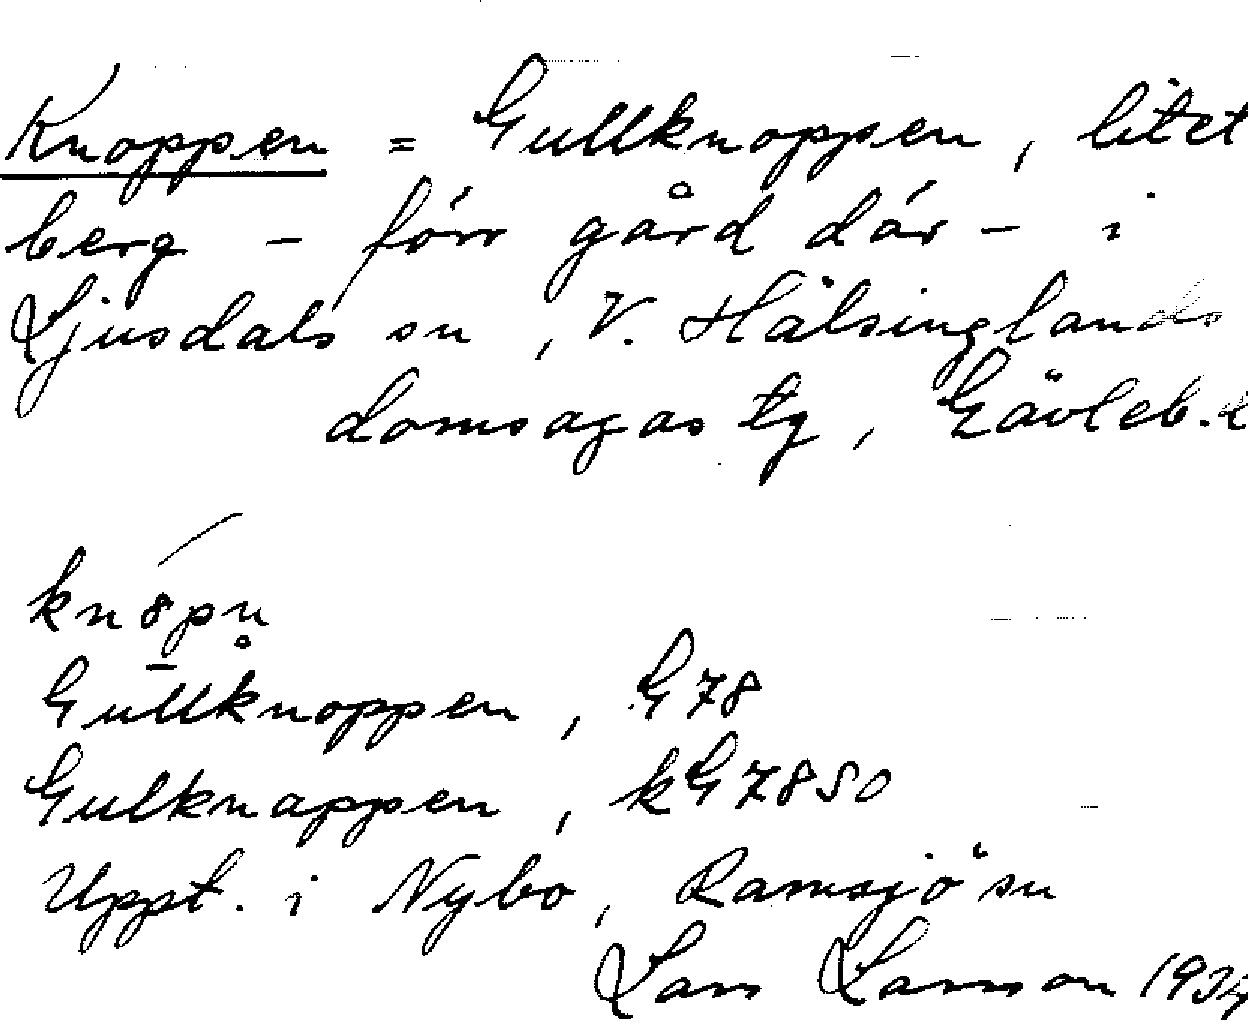 Knoppen = Gullknoppen, litet
berg - förr gård där - i
Ljusdals sn, V. Hälsinglands
domsagas tg, Gävleb.l
Gullknoppen, G78
Gulknappen, kG78SO
Uppt. i Nybo, Ramsjö sn
Lars Larsson 1934